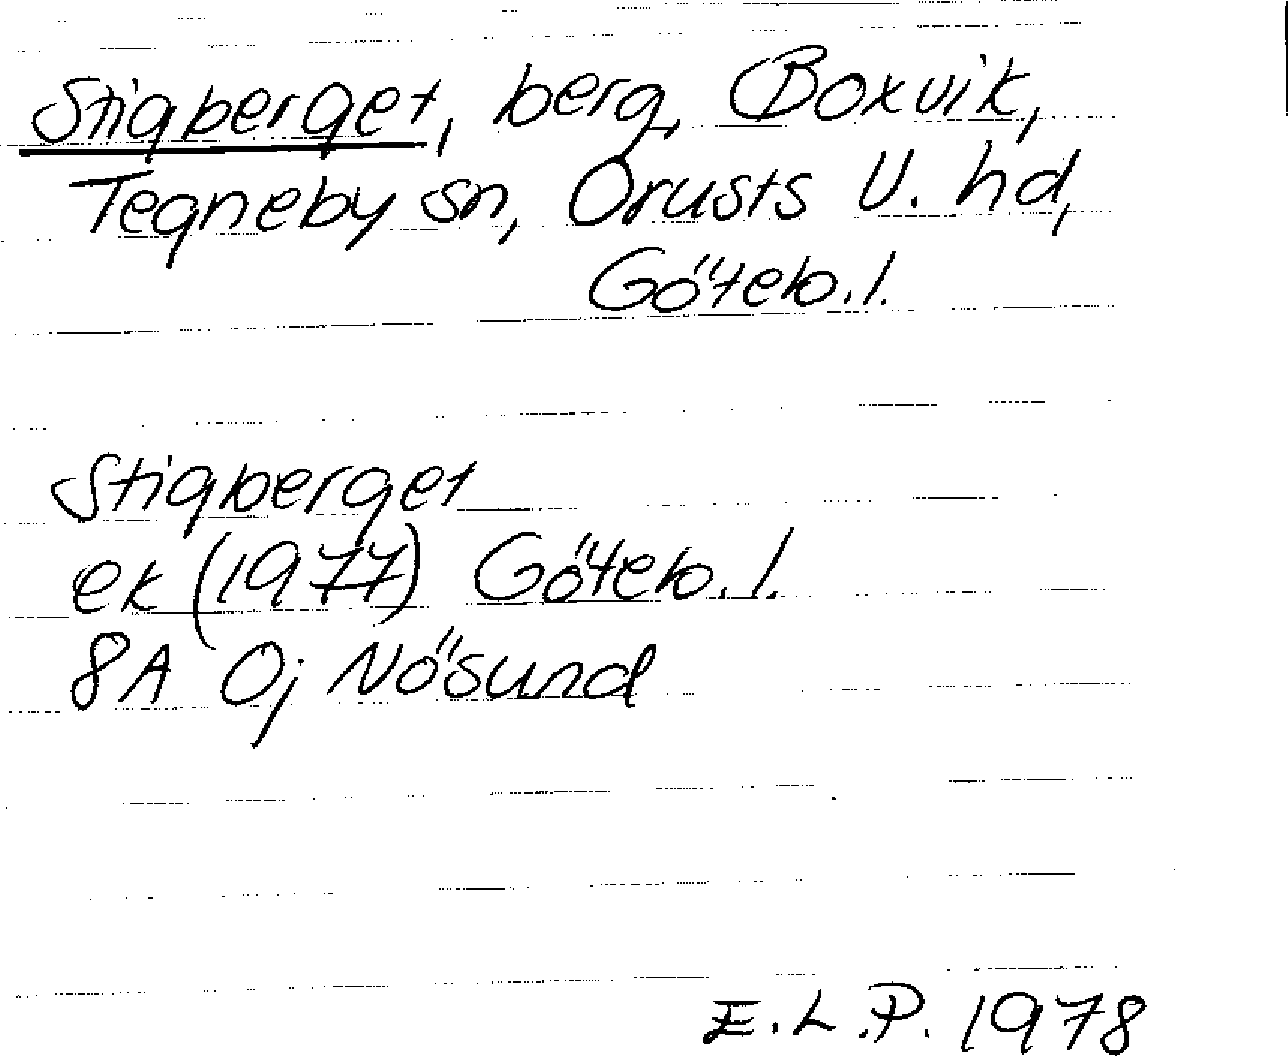 Stigberget, berg, Boxvik,
Tegneby sn, Orusts V. hd,
Göteb.l.
Stigberget
ek (1977) Göteb.l.
8A 0j Nösund
E.L.P. 1978